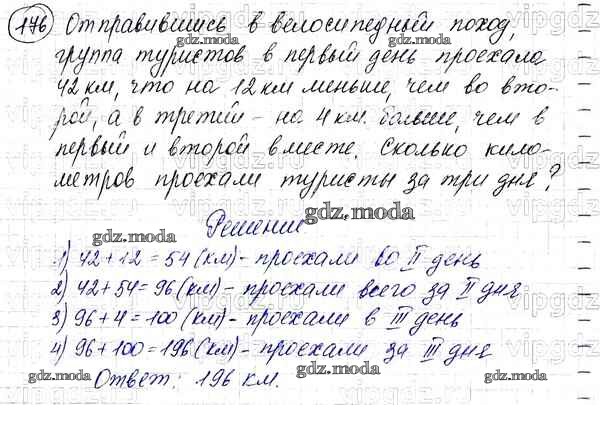 176 Отправившись в велосипедный поход,
группа туристов в первый день проехала
42 км, что на 12 км меньше, чем во вто-
рой, а в третий - на 4 км больше, чем в
первый и второй вместе. Сколько кило-
метров проехали туристы за три дня?
Решение
gdz.moda
gdz.moda
gdz.moda
1) 42+12=54 (км) - проехали во II день
2) 42+54=96 (км) - проехали всего за II дня
3) 96+4=100 (км) - проехали в III день
4) 96+100=196 (км) - проехали за III дня
gdz.moda
gdz.moda
gdz.moda
Ответ: 196 км.